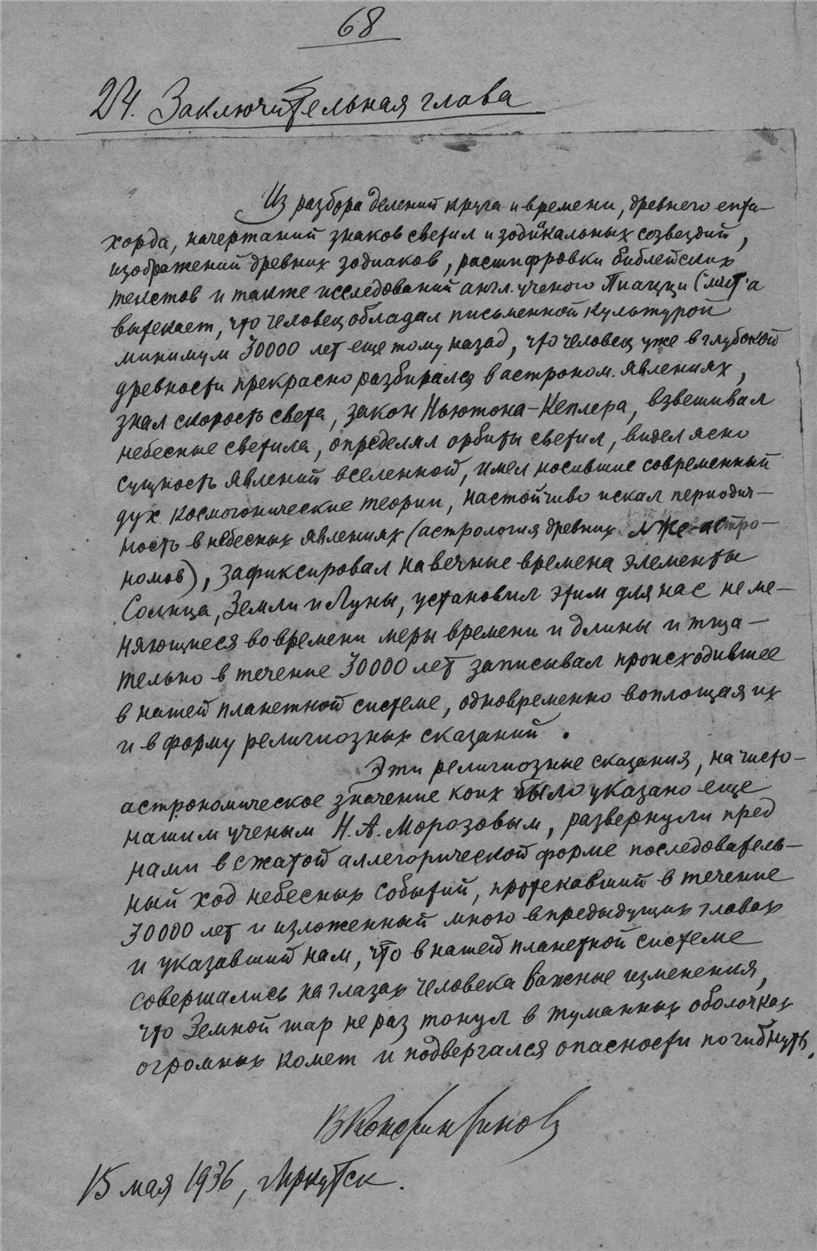 68
24. Заключительная глава
Из разбора делений круга и времени, древнего ента-
хорда, начертаний знаков светил и зодиакальных созвездий,
изображений древних зодиаков, расшифровки библейских
текстов и также исследований англ. ученого Пиацци Смита
вытекает, что человек обладал письменной культурой
минимум 30000 лет еще тому назад, что человек уже в глубокой
древности прекрасно разбирался в астроном. явлениях,
знал скорость света, закон Ньютона-Кеплера, взвешивал
небесные светила, определял орбиты светил, видел ясно
сущность явлений вселенной, имел носившие современный
дух космогонические теории, настойчиво искал периодич-
ность в небесных явлениях (астрология древних лже-астро-
номов), зафиксировал на вечные времена элементы
Солнца, Земли и Луны, установил этим для нас не ме-
няющиеся во времени меры времени и длины и тща-
тельно в течение 30000 лет записывал происходившее
в нашей планетной системе, одновременно воплощая их
и в форму религиозных сказаний.
Эти религиозные сказания, на чисто-
астрономическое значение коих было указано еще
нашим ученым Н.А. Морозовым, развернули пред
нами в сжатой аллегорической форме последователь-
ный ход небесных событий, протекавший в течение
30000 лет и изложенный мною в предыдущих главах
и указавший нам, что в нашей планетной системе
совершались на глазах человека важные изменения,
что Земной шар не раз тонул в туманных оболочках
огромных комет и подвергался опасности погибнуть.
15 мая 1936, г Иркутск.